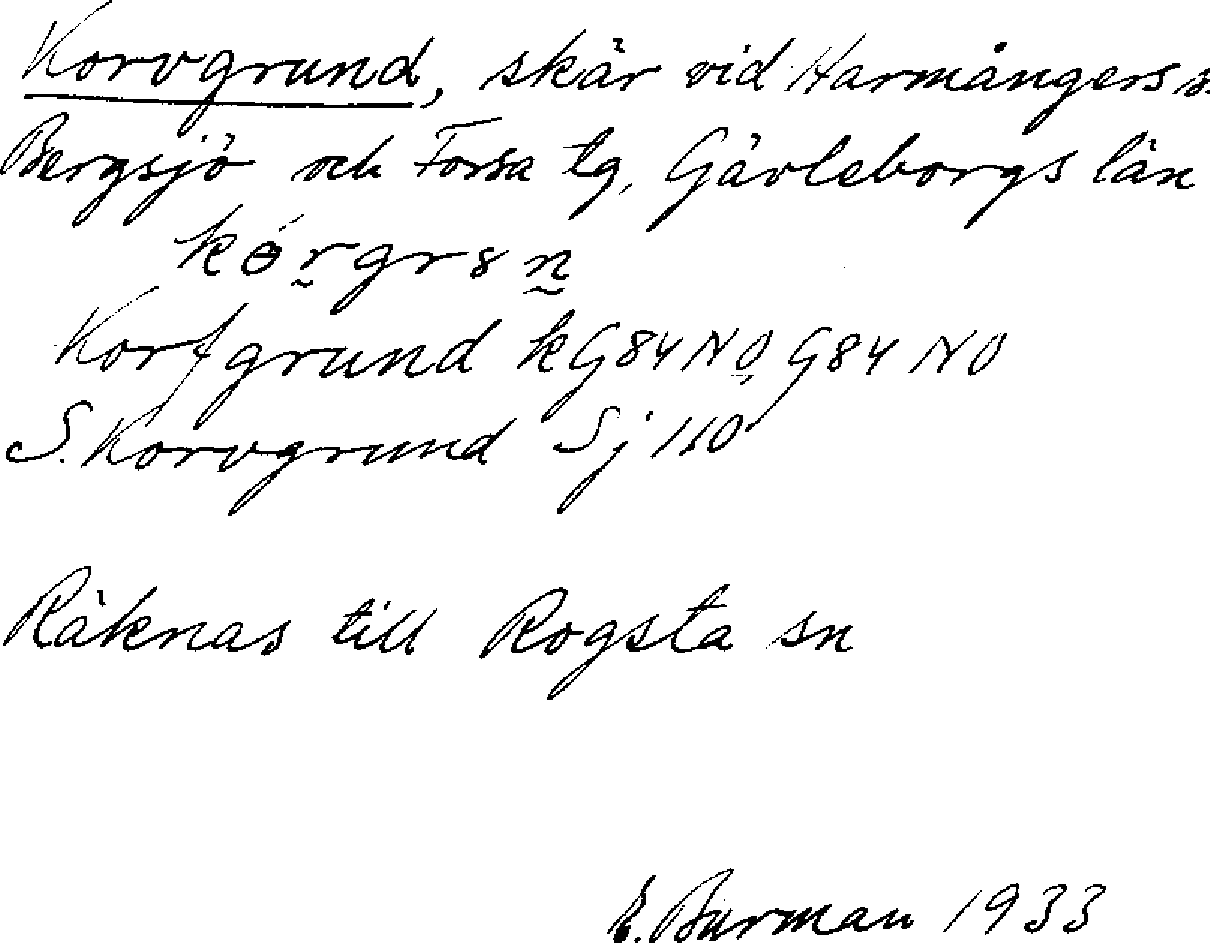 Korvgrund, skär vid Harmångers s.
Bergsjö och Forsa tg, Gävleborgs län
Korfgrund kG84NO, G84 NO
S. Korvgrund Sj 110
Räknas till Rogsta sn
E. Burman 1933